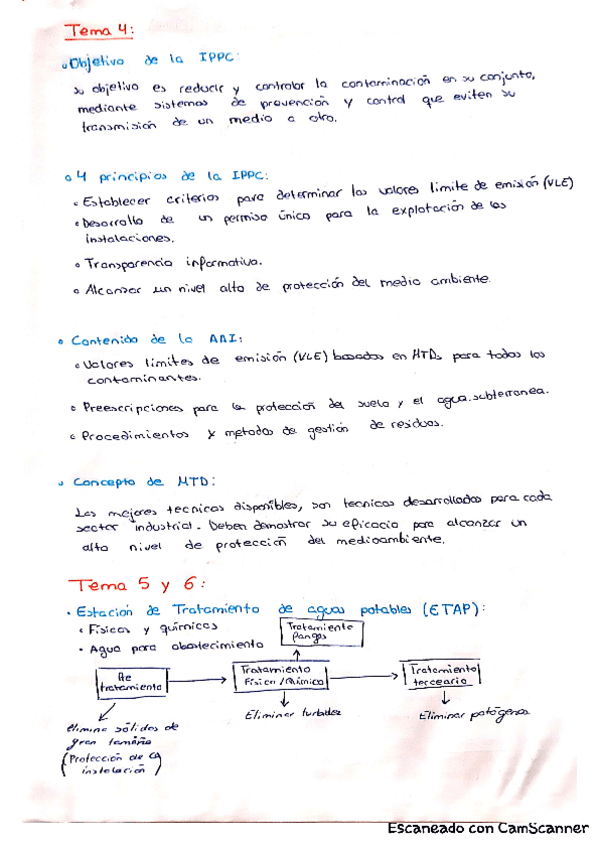 Tema 4:
• Objetivo de la IPPC:
su objetivo es reducir y controlar la contaminación en su conjunto,
mediante sistemas de prevención y control que eviten su
transmisión de un medio a otro.
• 4 principios de la IPPC:
• Establecer criterios para determinar los valores limite de emisión (VLE)
• Desarrollo de un permiso único para la explotación de las
instalaciones.
• Transparencia informativa.
• Alcanzar un nivel alto de protección del medio ambiente.
• Contenido de la AAI:
• Valores limites de emisión (VLE) basados en MTDs para todos los
contaminantes.
• Preescripciones para la protección del suelo y el agua subterranea.
• Procedimientos y metodos de gestión de residuos.
• Concepto de MTD:
Las mejores tecnicas disponibles, son tecnicas desarrolladas para cada
sector industrial. Deben demostrar su eficacia para alcanzar un
alto nivel de protección del medioambiente.
Tema 5 y 6:
• Estación de Tratamiento de aguas potables (ETAP):
• Físicos y químicos
• Agua para abastecimiento
Tratamiento
fangos
Pre
tratamiento
Tratamiento
Físico/Químico
Tratamiento
terceario
Elimina sólidos de
gran tamaño
(Protección de la
instalación)
Eliminar turbidez
Eliminar patógenos
Escaneado con CamScanner